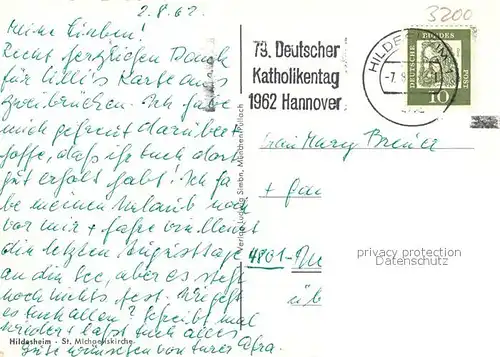 2.8.62
3200
Meine Lieben!
Recht herzlichen Dank
für Lilli's Karte aus
Zweibrücken. Ich habe
mich gefreut darüber +
hoffe, daß ihr euch dort
gut erholt habt! Ich ha
be meinen Urlaub noch
vor mir + fahre vielleicht
die letzten Augusttage
an die See, aber es steht
noch nichts fest. Wie geht
es euch allen? Schreibt mal
wieder + laßt euch alles
Gute wünschen von eurer
79. Deutscher
Katholikentag
1962 Hannover
HILDESHEIM
DEUTSCHE BUNDESPOST
10
Frau Mary
+ Fam
4801
üb
privacy protection
Datenschutz
Verlag Ludwig Simbn. München-Pullach
Hildesheim - St. Michaeliskirche